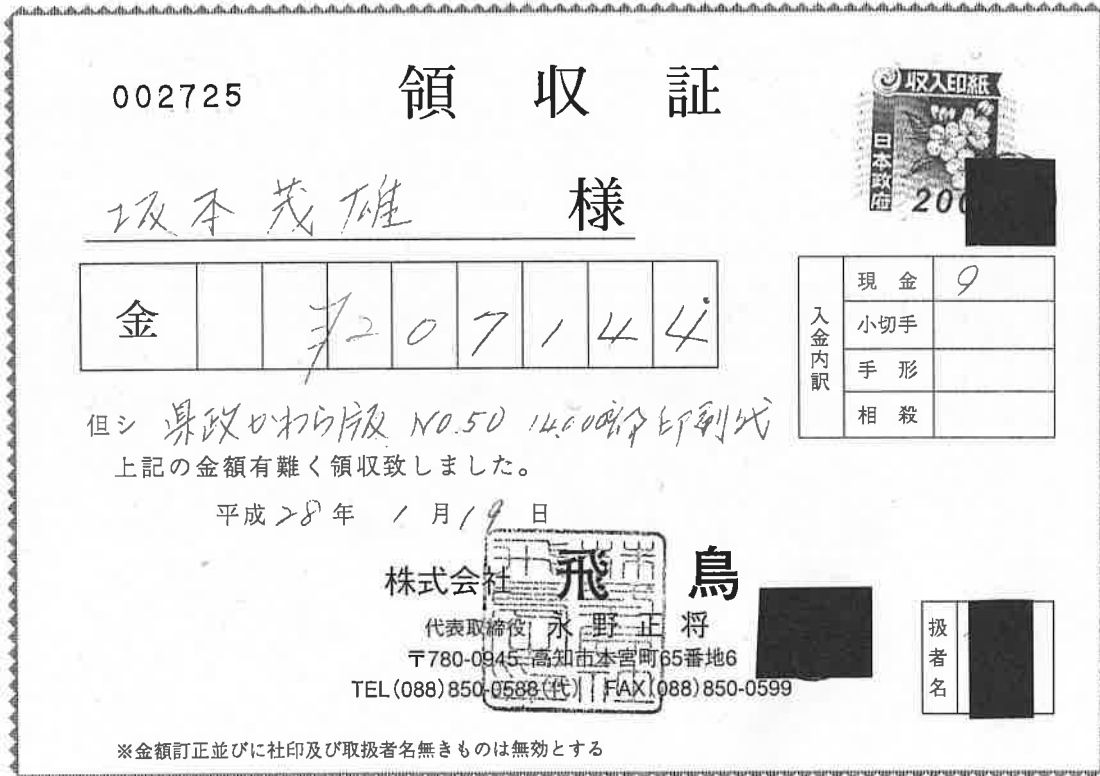 002725
領収証
収入印紙
日本政府
200
坂本茂雄 様
金 ¥207144
入金内訳
現金
小切手
手形
相殺
但シ 県政かわら版 NO.50 14,000部印刷代
上記の金額有難く領収致しました。
平成28年 1月19日
株式会社 飛鳥
代表取締役 永野正将
〒780-0945 高知市本宮町65番地6
TEL(088)850-0588(代) FAX(088)850-0599
扱者名
※金額訂正並びに社印及び取扱者名無きものは無効とする